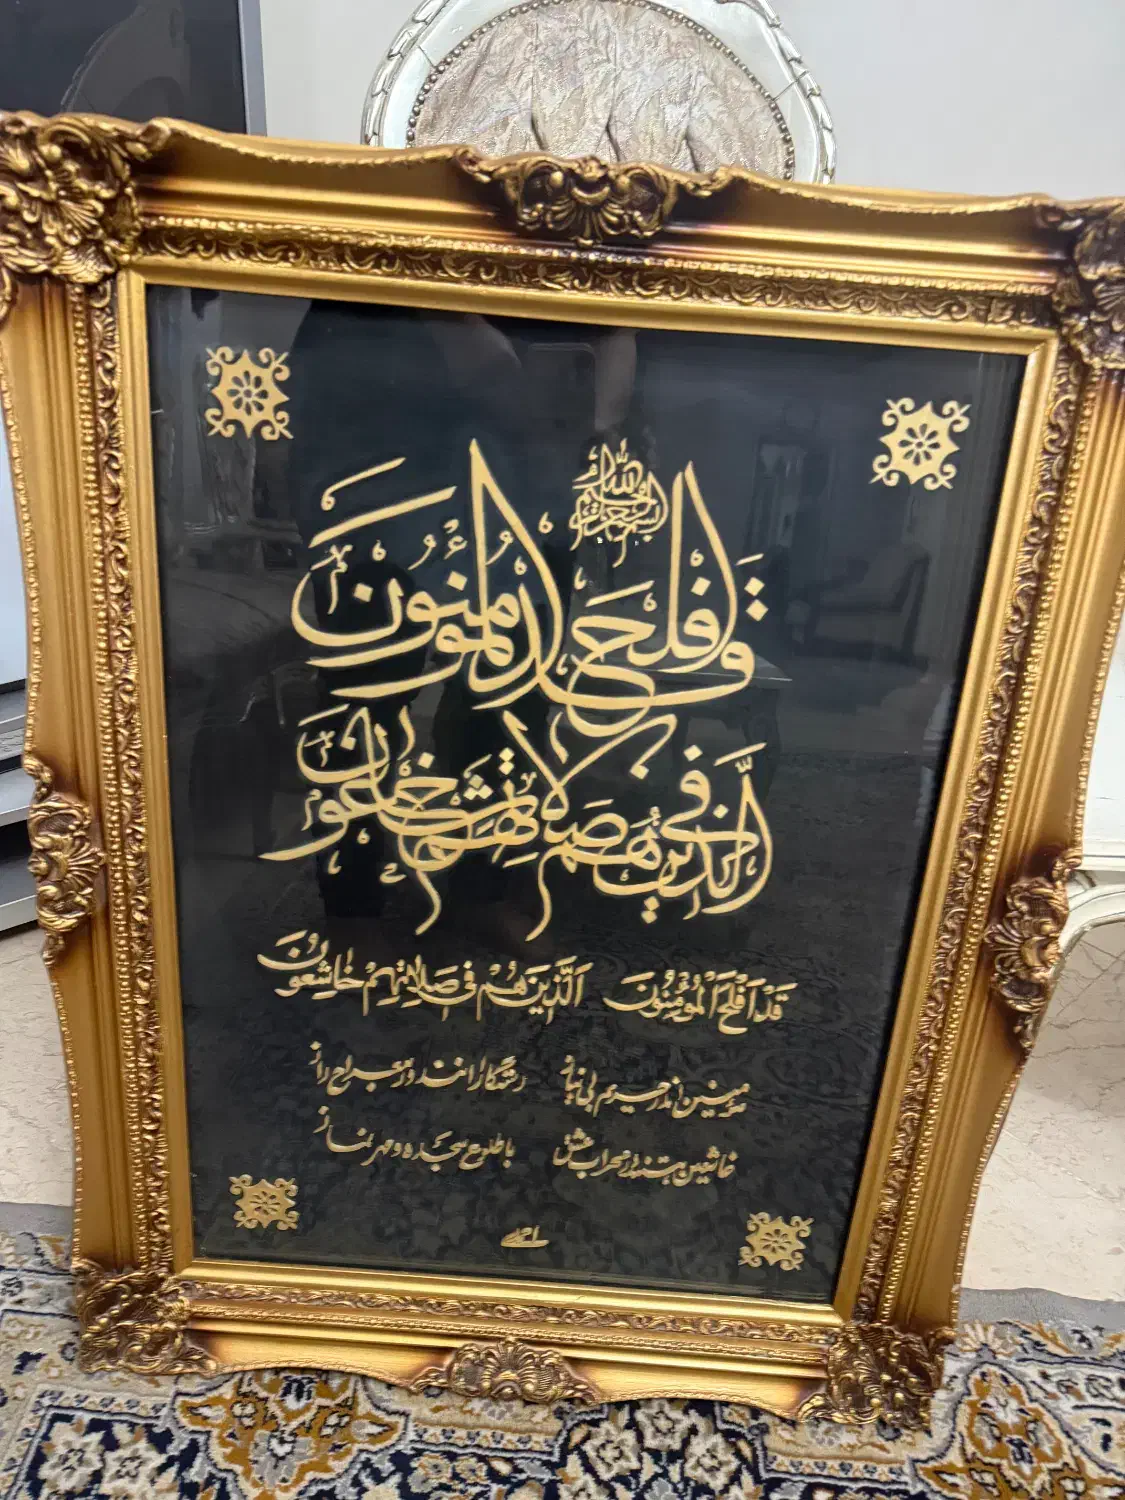 بسم الله الرحمن الرحیم
قد افلح المؤمنون
الذین هم فی صلاتهم خاشعون
قَدْ اَفْلَحَ الْمُؤْمِنُونَ الَّذینَ هُمْ فی صَلاتِهِمْ خاشِعُونَ
مومنین اندر حریم بی نیاز رستگارانند در معراج راز
خاشعین هستند در محراب عشق با طلوع سجده و مهر نماز